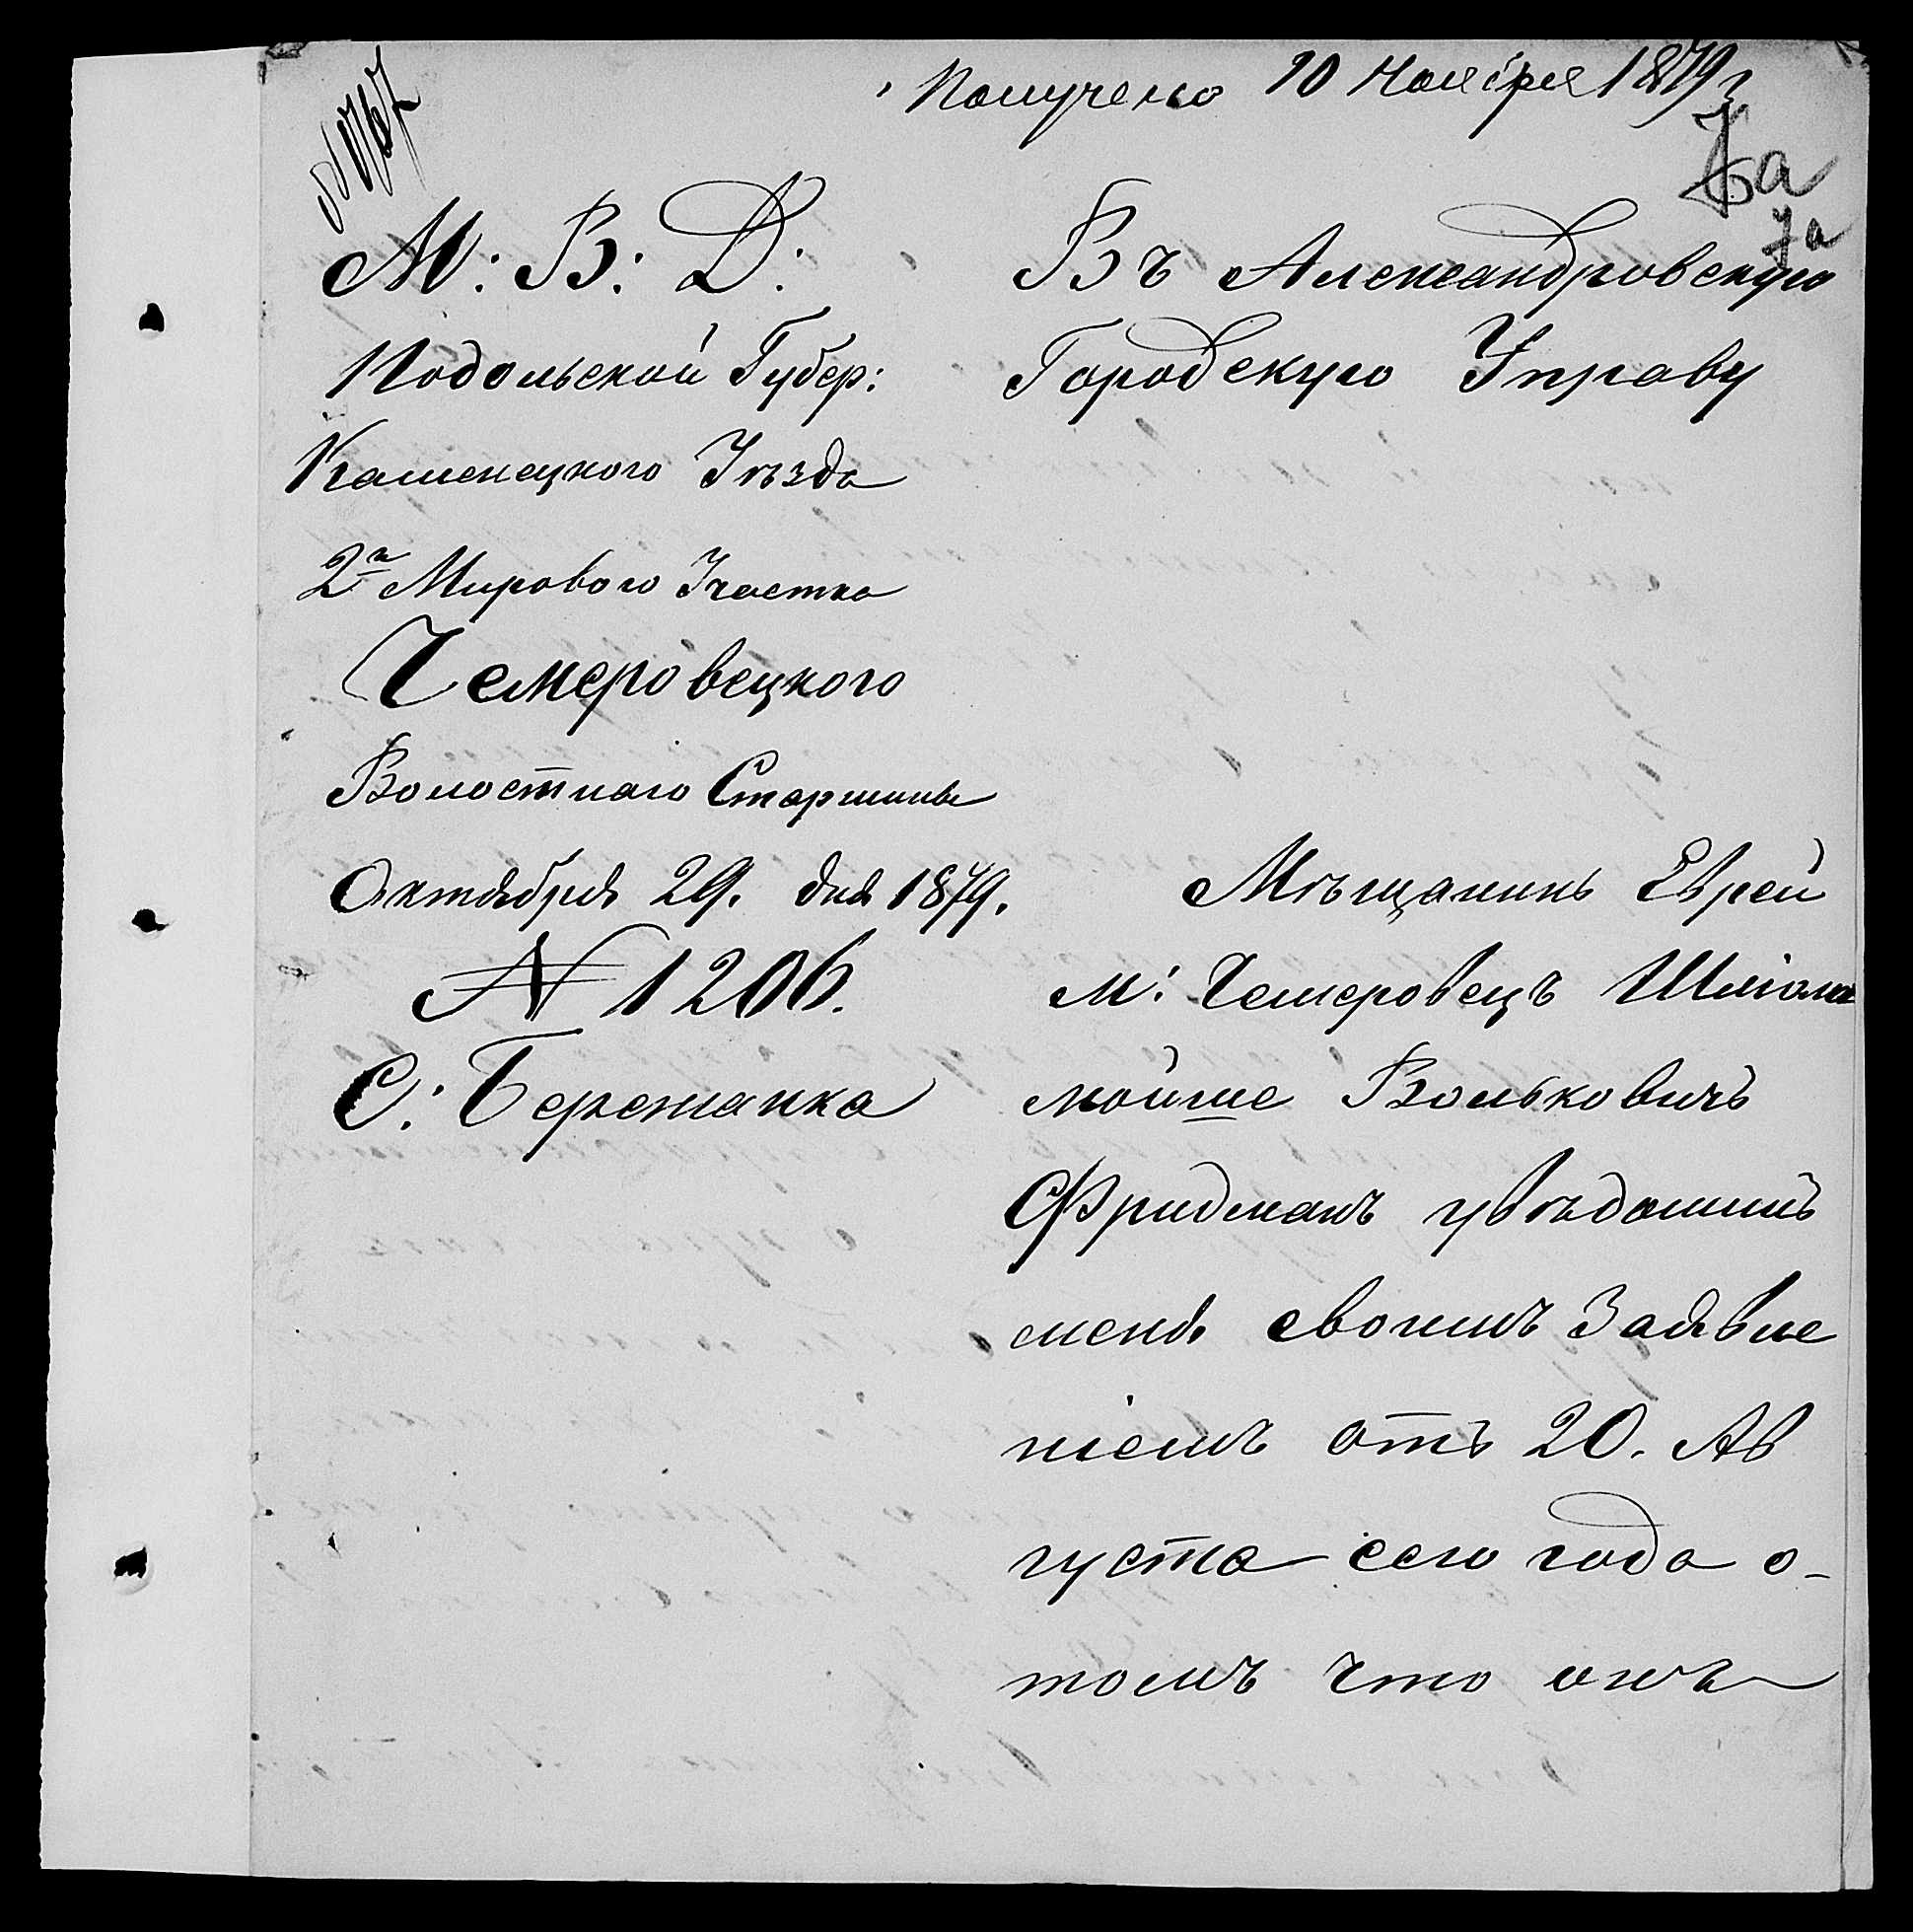 Получено 10 Ноября 1879 г
7а
М: В: Д:
Подольской Губер:
Каменецкого Уѣзда
2го Мирового Участка
Чемеровецкого
Волостнаго Старшины
Октября 29. дня 1879.
№ 1206.
С: Бережанка
Въ Александровскую
Городскую Управу
Мѣщанинъ Еврей
м: Чемеровецъ Шліома
мойше Вольковичъ
Фридманъ увѣдомилъ
меня своимъ Заявле
ніемъ отъ 20. Ав
густа сего года о-
томъ что онъ